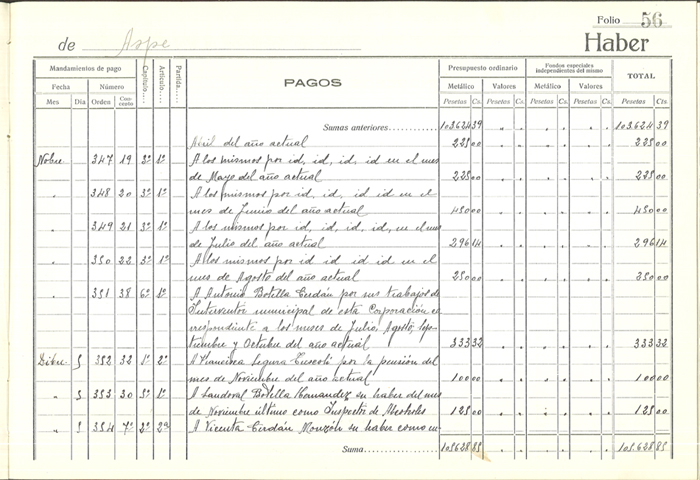 Folio 56
de Aspe Haber
Mandamientos de pago Capítulo Artículo Partida PAGOS Presupuesto ordinario Fondos especiales independientes del mismo TOTAL
Fecha Número Metálico Valores Metálico Valores
Mes Día Orden Concepto Pesetas Cs. Pesetas Cs. Pesetas Cs. Pesetas Cs. Pesetas Cts
Sumas anteriores 103.624 39 103.624 39
Abril del año actual 225 00 225 00
Nobre 347 19 3º 1º A los mismos por id, id, id, id en el mes
de Mayo del año actual 225 00 225 00
" 348 20 3º 1º A los mismos por id, id, id en el
mes de Junio del año actual 450 00 450 00
" 349 21 3º 1º A los mismos por id, id, id, id, en el mes
de Julio del año actual 296 14 296 14
" 350 22 3º 1º A los mismos por id id id id en el
mes de Agosto del año actual
" 351 38 6º 1º A Antonio Botella Cerdán por sus trabajos de
Interventor municipal de esta Corporación co
rrespondiente a los meses de Julio, Agosto, Sep-
tiembre y Octubre del año actual 333 32 333 32
Dibre 5 352 32 1º 2º A Francisca Segura por la pensión del
mes de Noviembre del año actual 100 00 100 00
" 5 353 30 5º 1º A Sandoval Botella Hernandez su haber del mes
de Noviembre último como Inspector de Alcoholes 125 00 125 00
" 5 354 7º 2º 2º A Vicenta Cerdán Monzón su haber como en-
Suma 105628 85 105.628 85